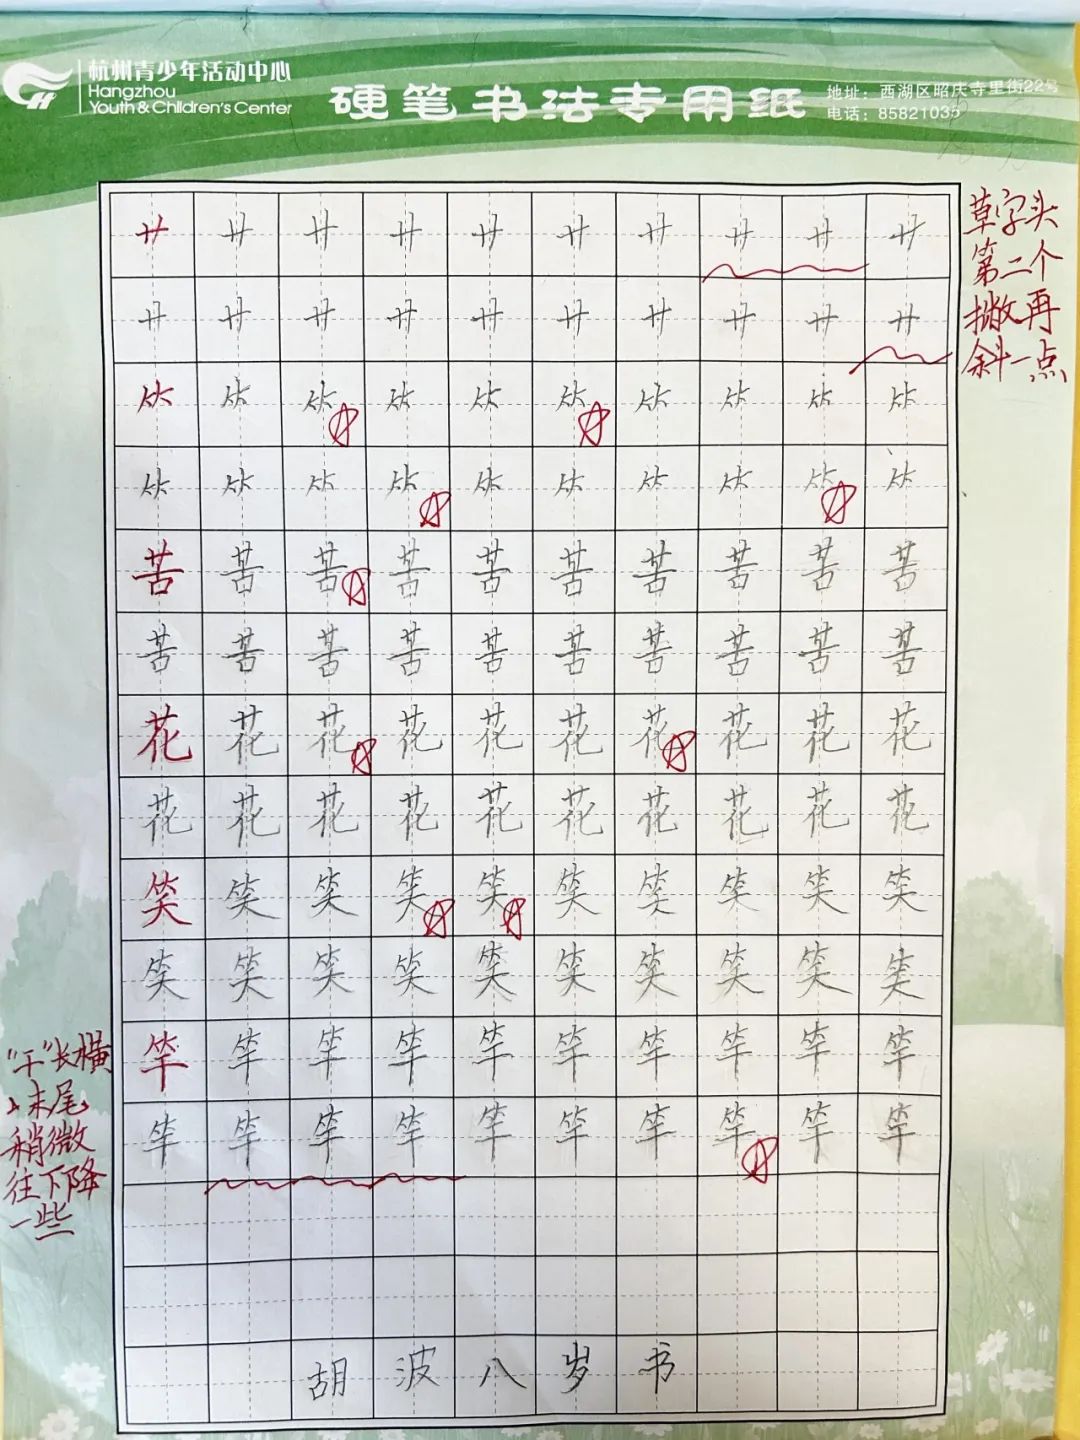 杭州青少年活动中心
Hangzhou
Youth & Children's Center
硬笔书法专用纸
地址：西湖区昭庆寺里街22号
电话：85821035
草字头
第二个
撇再
斜一点
艹艹艹艹艹艹艹艹艹艹
艹艹艹艹艹艹艹艹艹艹
⺮⺮⺮⺮⺮⺮⺮⺮⺮⺮
⺮⺮⺮⺮⺮⺮⺮⺮⺮⺮
苦苦苦苦苦苦苦苦苦苦
苦苦苦苦苦苦苦苦苦苦
花花花花花花花花花花
花花花花花花花花花花
笑笑笑笑笑笑笑笑笑笑
笑笑笑笑笑笑笑笑笑笑
竿竿竿竿竿竿竿竿竿竿
竿竿竿竿竿竿竿竿竿竿
"干"长横
末尾
稍微
往下降
一些
胡波八岁书